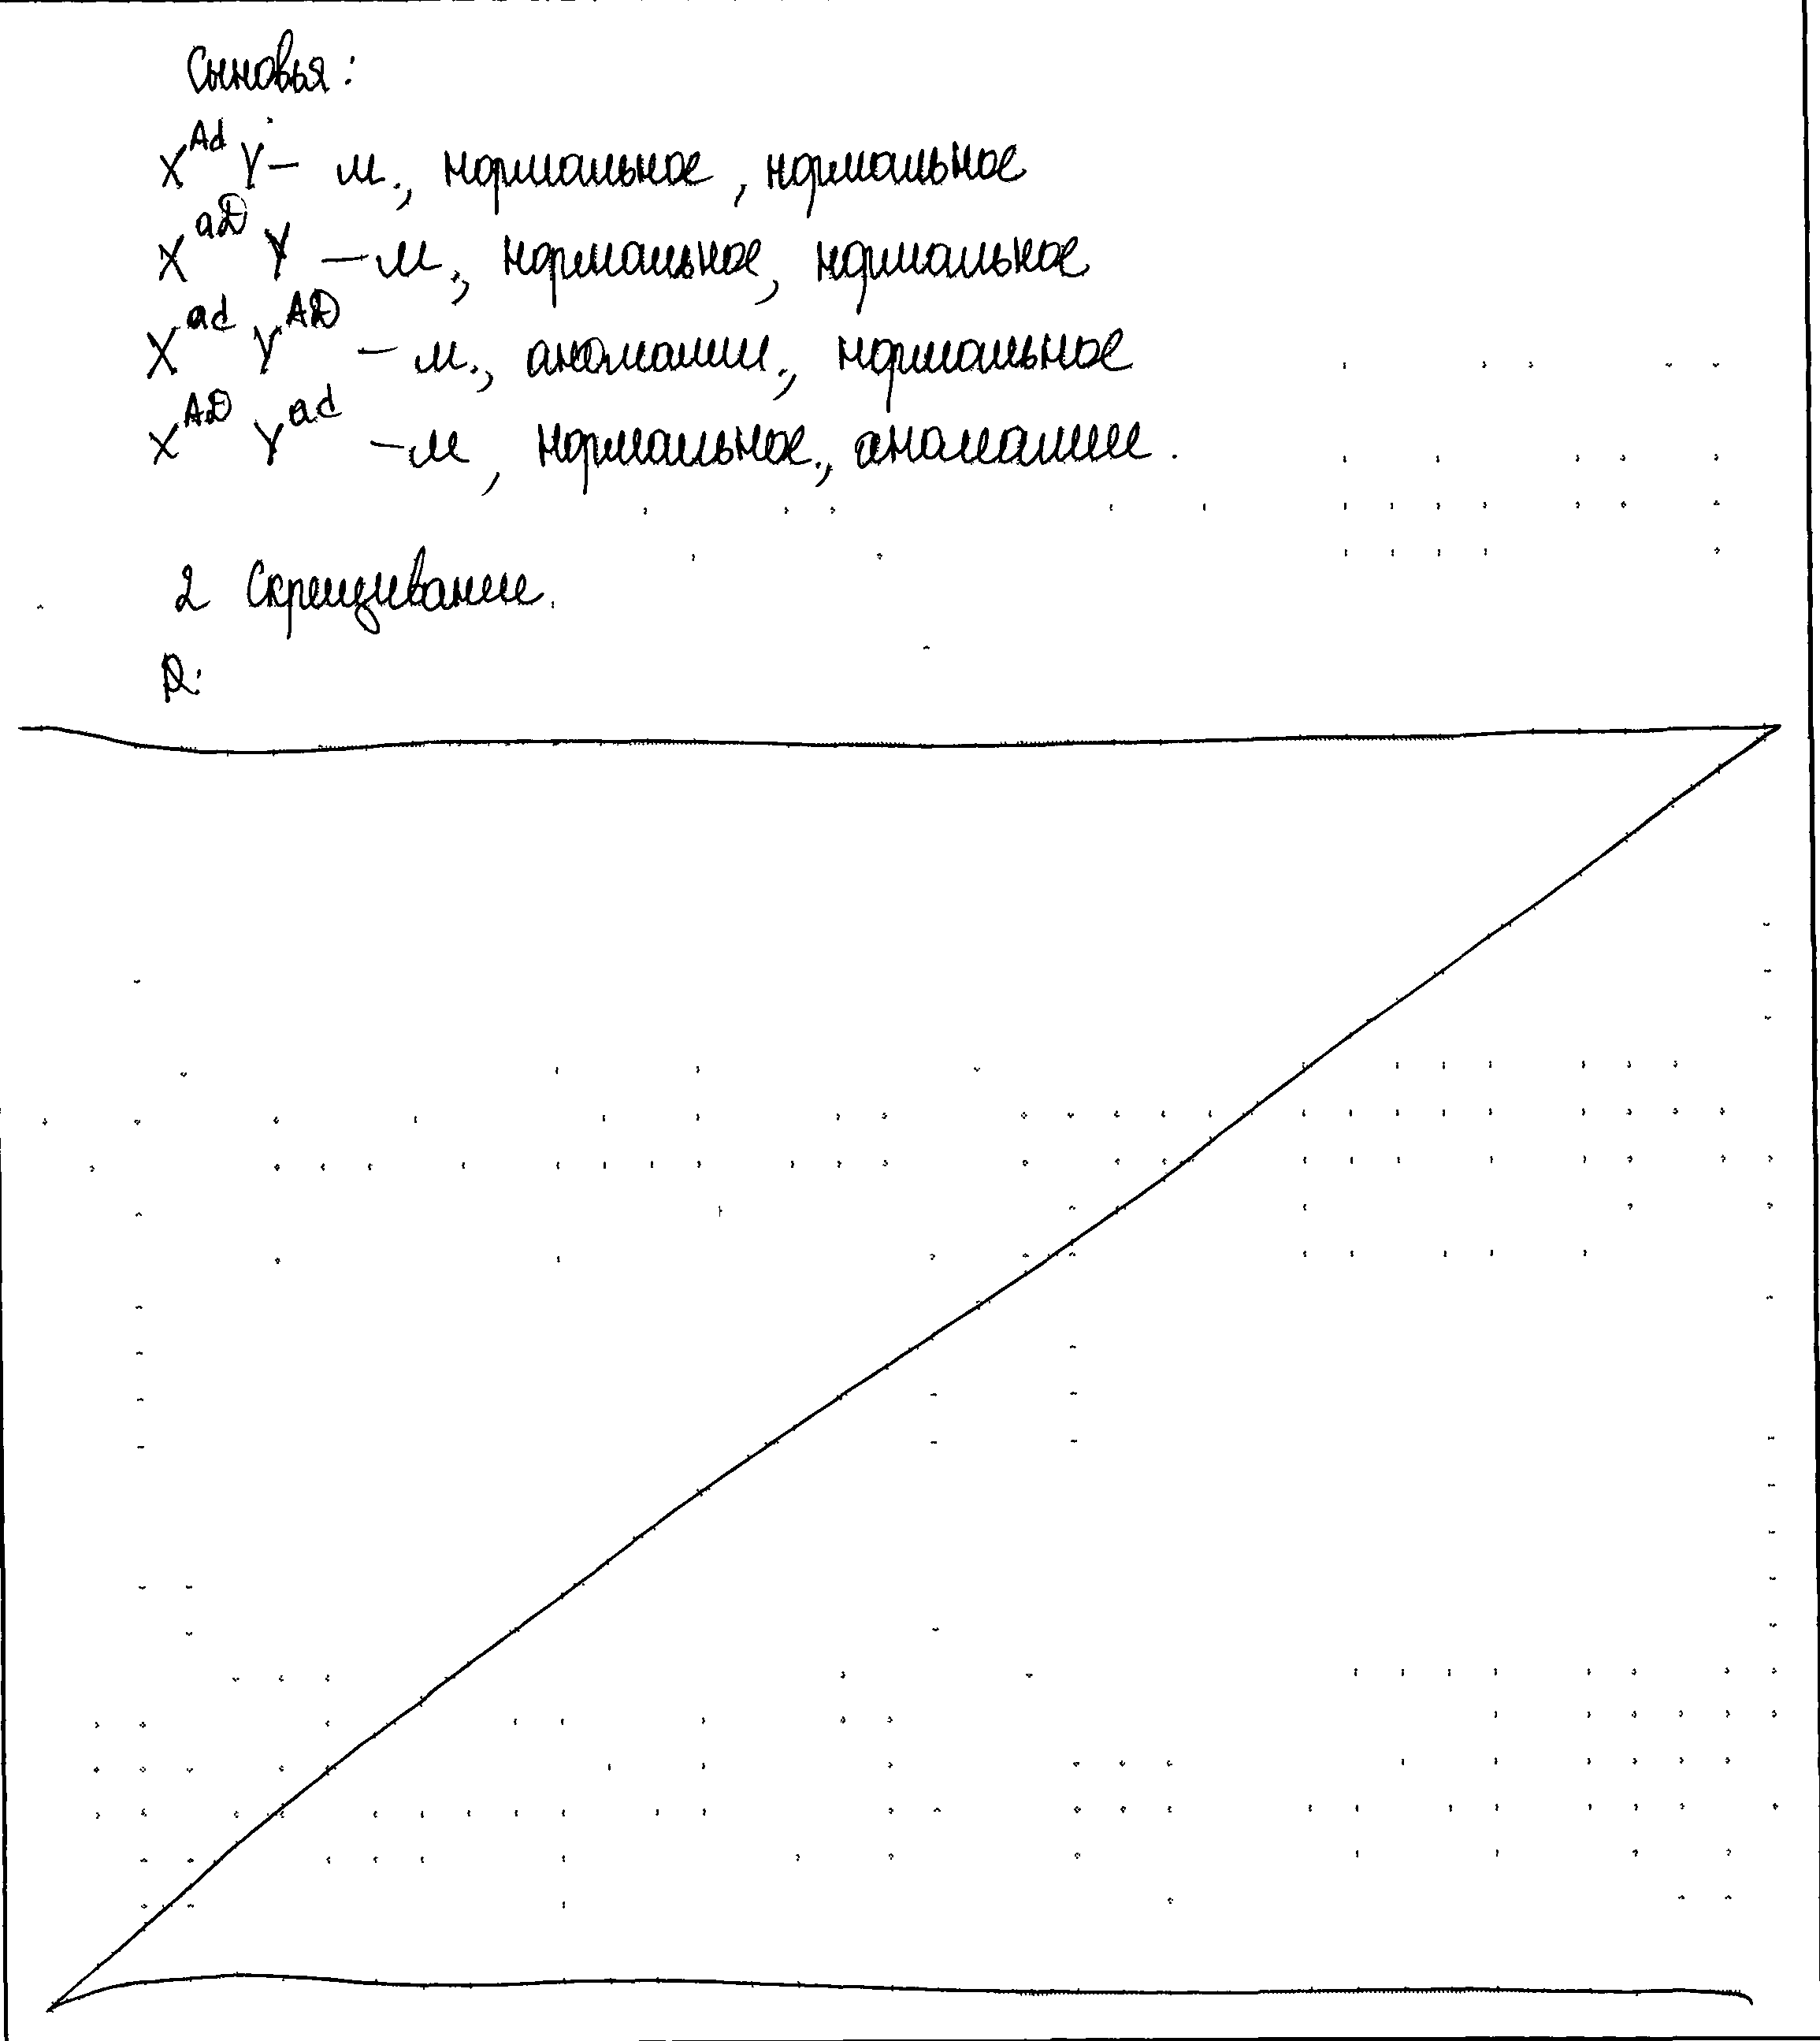 Сыновья:
X^Ad Y – м., нормальное, нормальное
X^aD Y – м., нормальное, нормальное
X^ad Y^AD – м., аномалии., нормальное
X^AD Y^ad – м, нормальное., аномалии.
2 Скрещивание.
P: